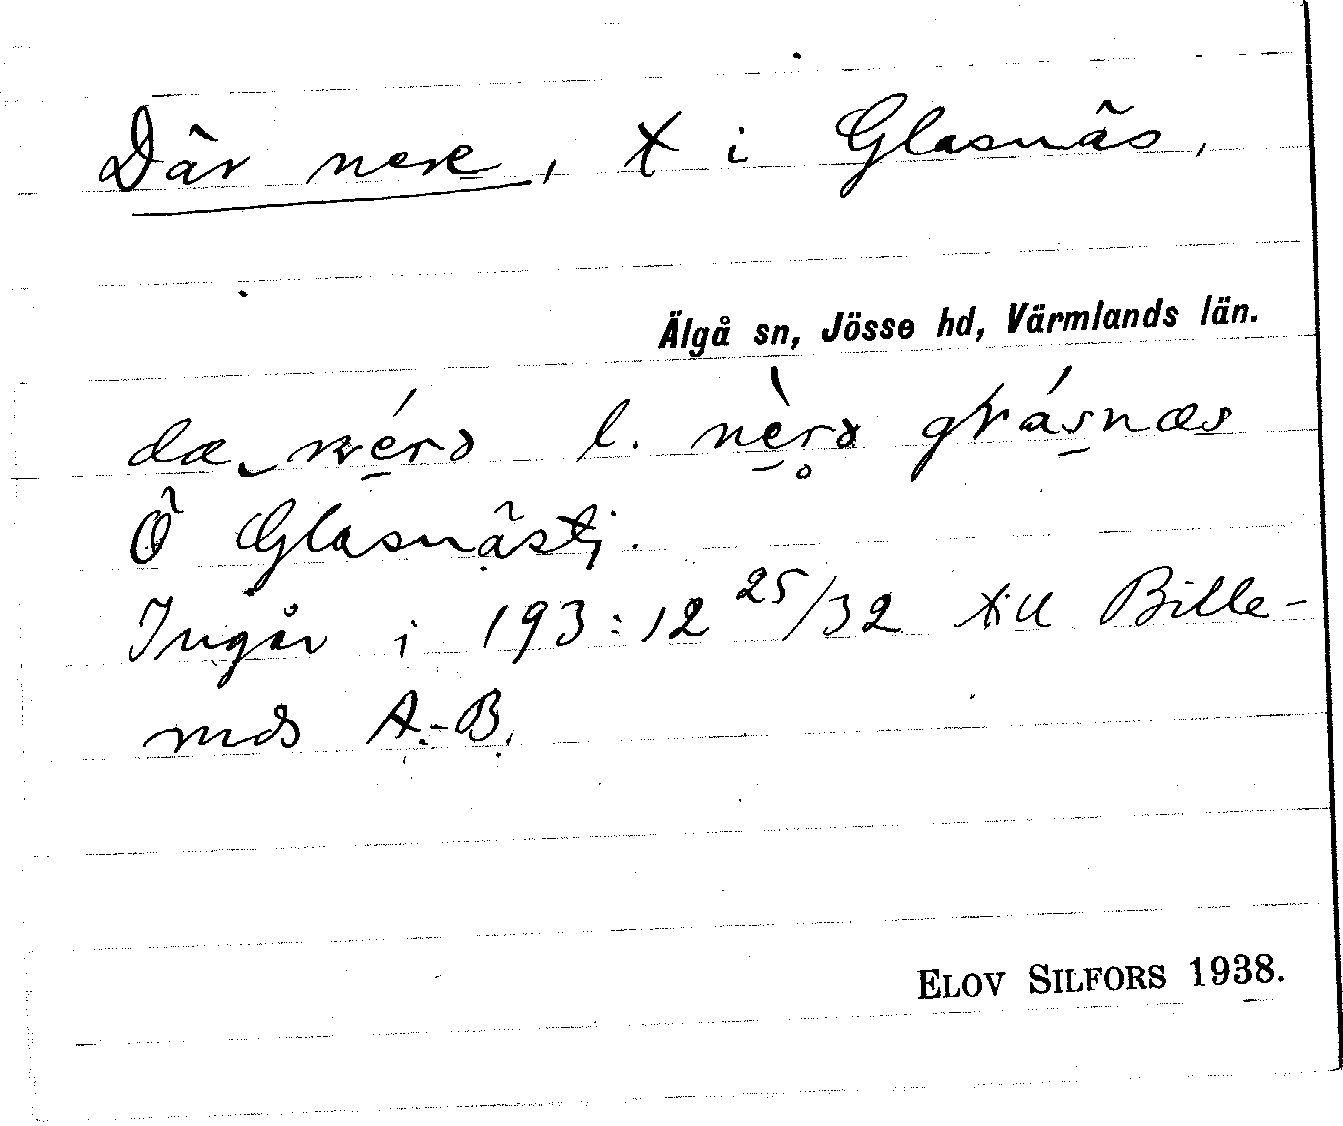 Där nere, x i Glasnäs,
Älgå sn, Jösse hd, Värmlands län.
dæ nérə l. nèrə gɫásnæs
Ö Glasnästj.
Ingår i 193:12 25/32 till Bille-
ruds A.-B.
ELOV SILFORS 1938.